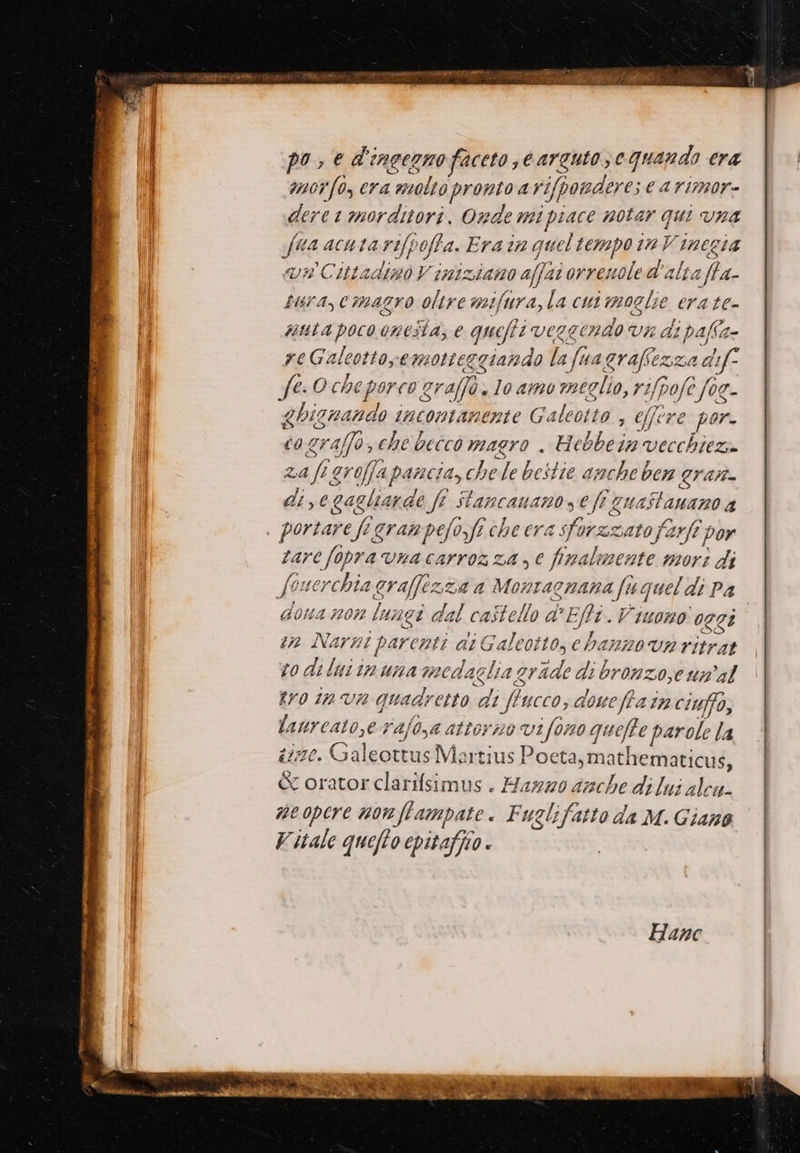 po, e d'ingegno faceto, e arguto, e quando era
morſo, era molto pronto a riſpondere; e a rimor-
dere i morditori. Onde mi piace notar qui una
ſua acuta riſpoſta. Era in quel tempo in Vinegia
un Cittadino Viniziano aſſai orreuole d'alta ſta-
tura, e magro oltre miſura, la cui moglie era te-
nuta poco onesta, e queſti veggendo un di paſſa-
re Galeotto, e motteggiando la ſua graſſezza diſ-
ſe. O che porco graſſo. Io amo meglio, riſpoſe ſog-
ghignando incontanente Galeotto, eſſere por-
co graſſo, che becco magro. Hebbe in vecchiez-
za ſi groſſa pancia, che le bestie anche ben gran-
di, e gagliarde ſi stancauano, e ſi guastauano a
portare ſi gran peſo, ſi che era sforzato farſi por
tare ſopra una carrozza, e finalmente mori di
ſouerchia graſſezza a Montagnana ſu quel di Pa
doua non lungi dal castello d'Eſti. Viuono oggi
in Narni parenti di Galeotto, e hanno un ritrat
to di lui in una medaglia grāde di bronzo, e un'al
tro in un quadretto di ſtucco, doue ſta in ciuffo,
laureato, e raſo, a attorno vi ſono queſte parole la
tine. Galeottus Martius Poeta, mathematicus,
& orator clariſsimus. Hanno anche di lui alcu-
ne opere non ſtampate. Fugli fatto da M. Giano
Vitale queſto epitaffio.
Hanc